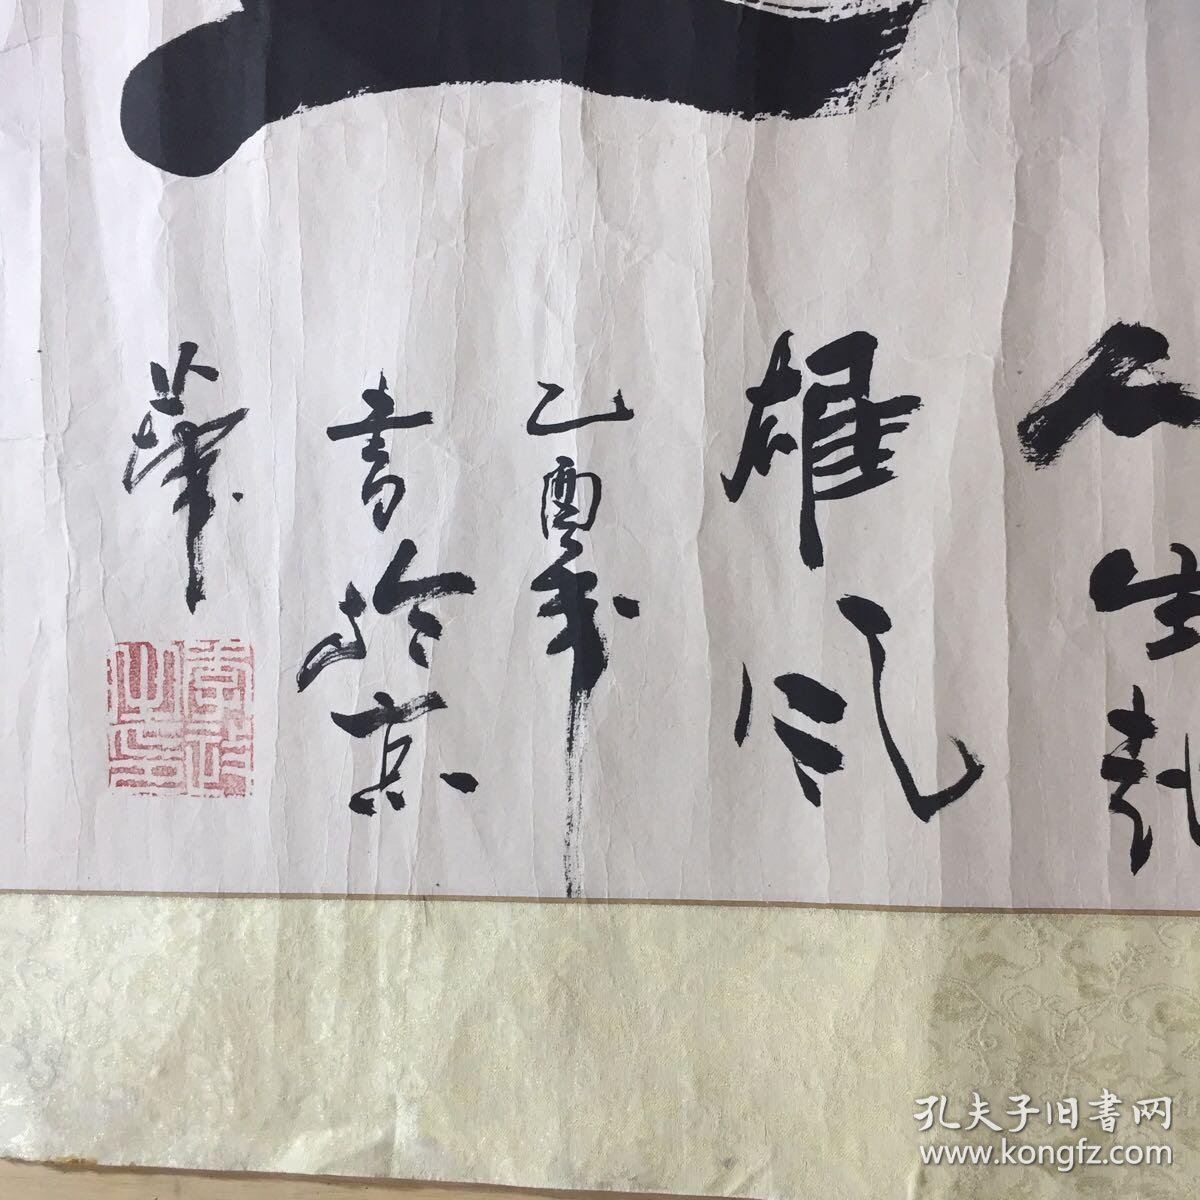 人生彪
雄风
乙酉年
书於京
華
孔夫子旧書网
www.kongfz.com